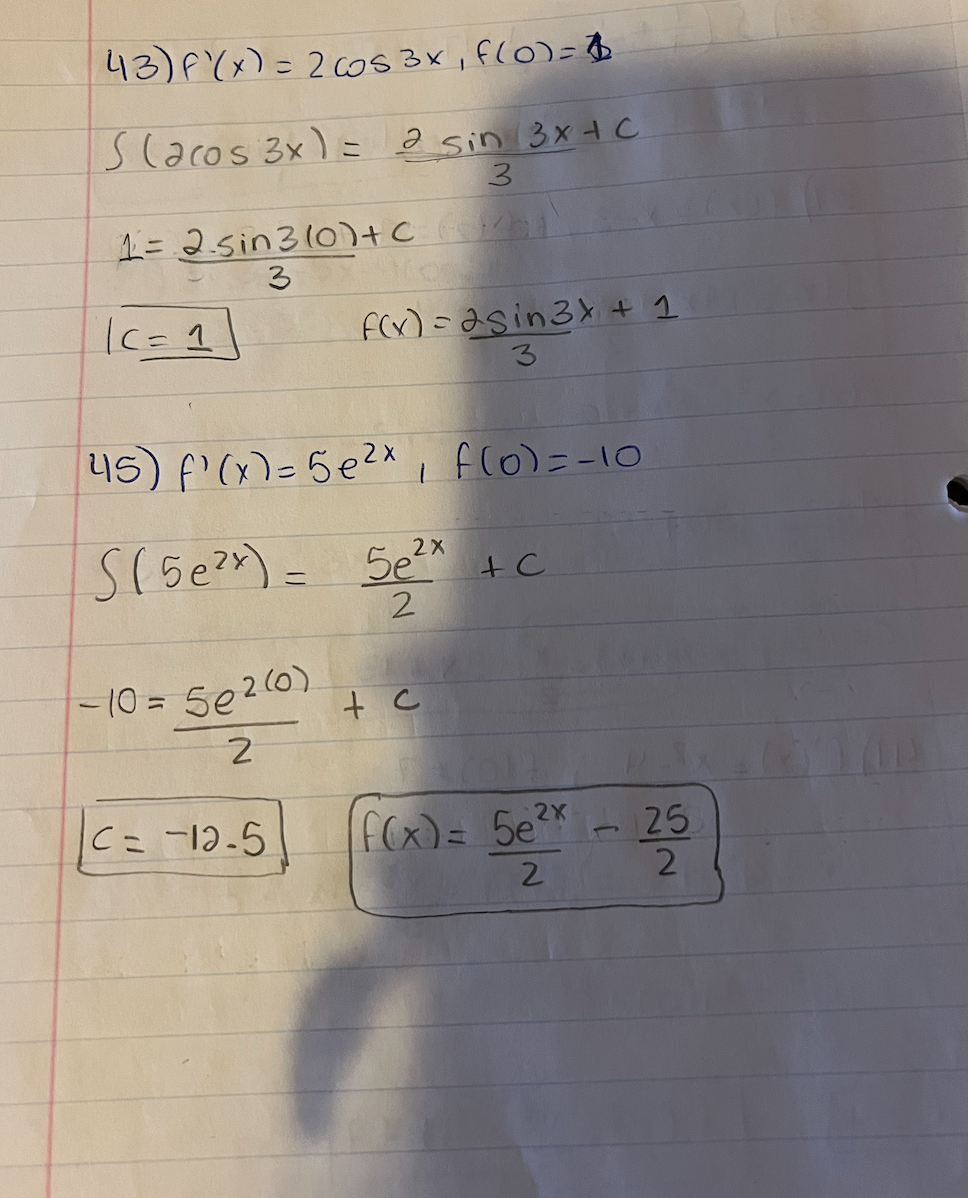 43) f'(x) = 2 cos 3x, f(0) = 1
∫(2cos 3x) = 2 sin 3x + C / 3
1 = 2 sin 3(0) + C / 3
C = 1 f(x) = 2sin3x / 3 + 1
45) f'(x) = 5e^2x, f(0) = -10
∫(5e^2x) = 5e^2x / 2 + C
-10 = 5e^2(0) / 2 + C
C = -12.5 f(x) = 5e^2x / 2 - 25 / 2